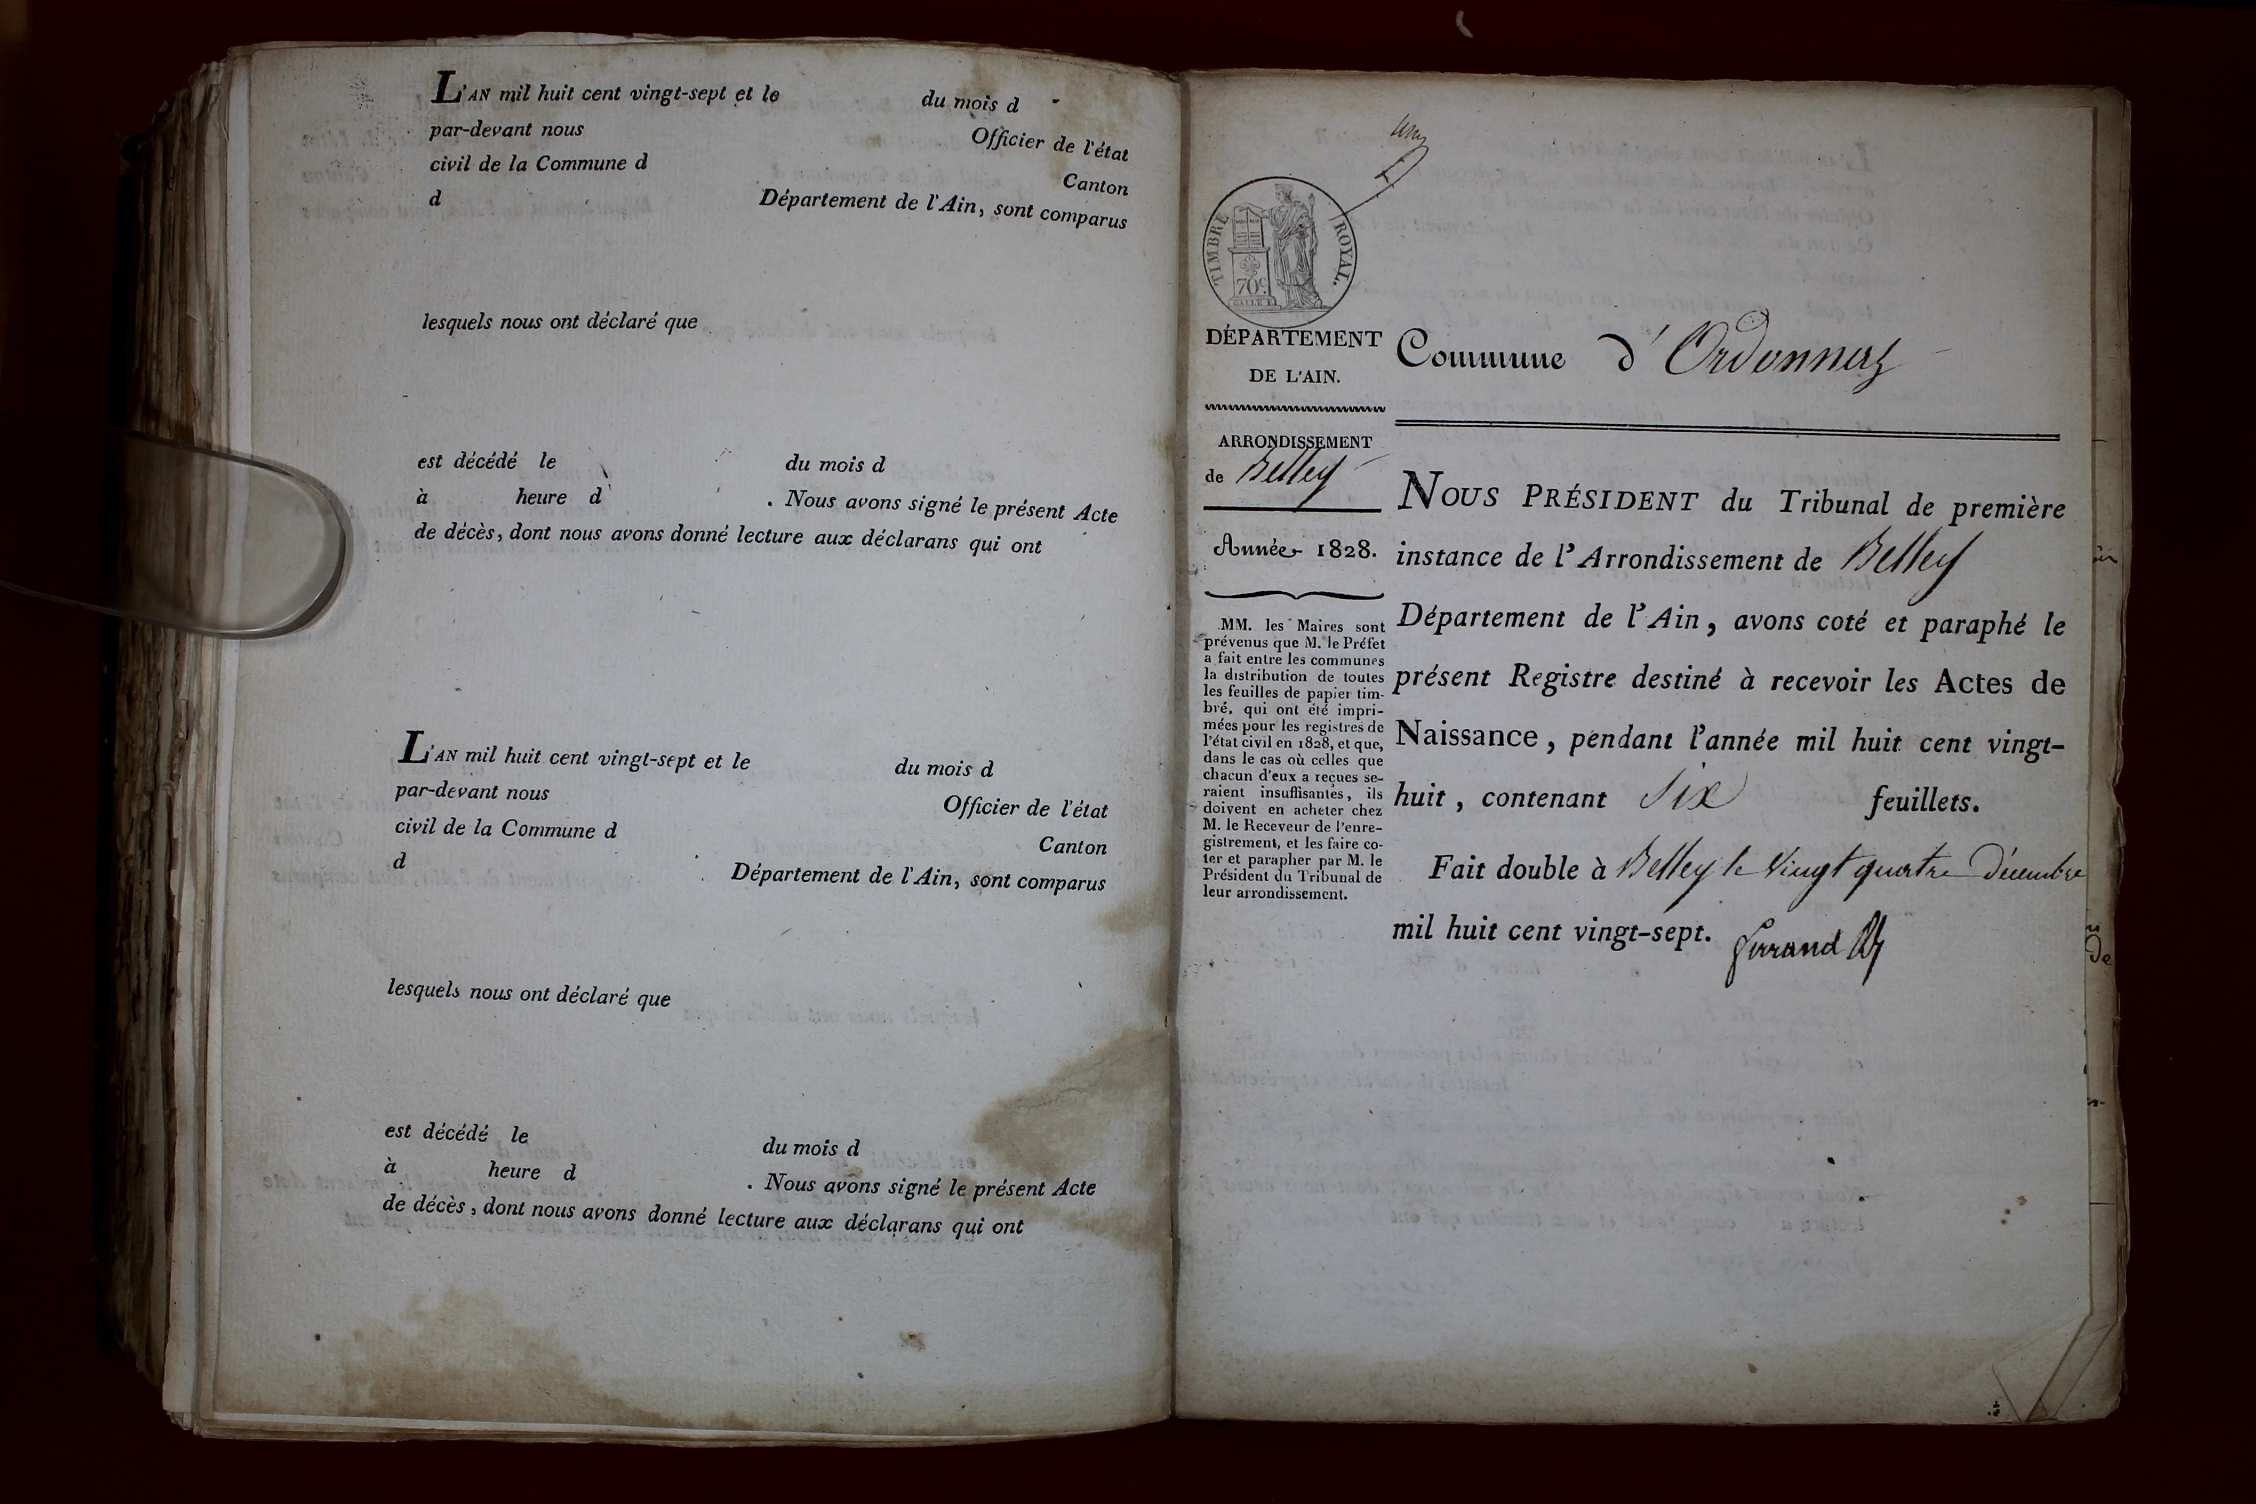 L'AN mil huit cent vingt-sept et le du mois d
par-devant nous Officier de l'état
civil de la Commune d Canton
d Département de l'Ain, sont comparus
lesquels nous ont déclaré que
est décédé le du mois d
à heure d . Nous avons signé le présent Acte
de décès, dont nous avons donné lecture aux déclarans qui ont
L'AN mil huit cent vingt-sept et le du mois d
par-devant nous Officier de l'état
civil de la Commune d Canton
d Département de l'Ain, sont comparus
lesquels nous ont déclaré que
est décédé le du mois d
à heure d . Nous avons signé le présent Acte
de décès, dont nous avons donné lecture aux déclarans qui ont
TIMBRE ROYAL.
70c.
DÉPARTEMENT
DE L'AIN.
ARRONDISSEMENT
de Belley
Année 1828.
MM. les Maires sont
prévenus que M. le Préfet
a fait entre les communes
la distribution de toutes
les feuilles de papier tim-
bré, qui ont été impri-
mées pour les registres de
l'état civil en 1828, et que,
dans le cas où celles que
chacun d'eux a reçues se-
raient insuffisantes, ils
doivent en acheter chez
M. le Receveur de l'enre-
gistrement, et les faire co-
ter et parapher par M. le
Président du Tribunal de
leur arrondissement.
Commune d'Ordonnaz
NOUS PRÉSIDENT du Tribunal de première
instance de l'Arrondissement de Belley
Département de l'Ain, avons coté et paraphé le
présent Registre destiné à recevoir les Actes de
Naissance, pendant l'année mil huit cent vingt-
huit, contenant Six feuillets.
Fait double à Belley le vingt quatre Décembre
mil huit cent vingt-sept. Ferrand